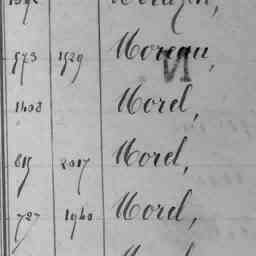 573 1529 Moreau,
N
1408 Morel,
815 2017 Morel,
727 1940 Morel,